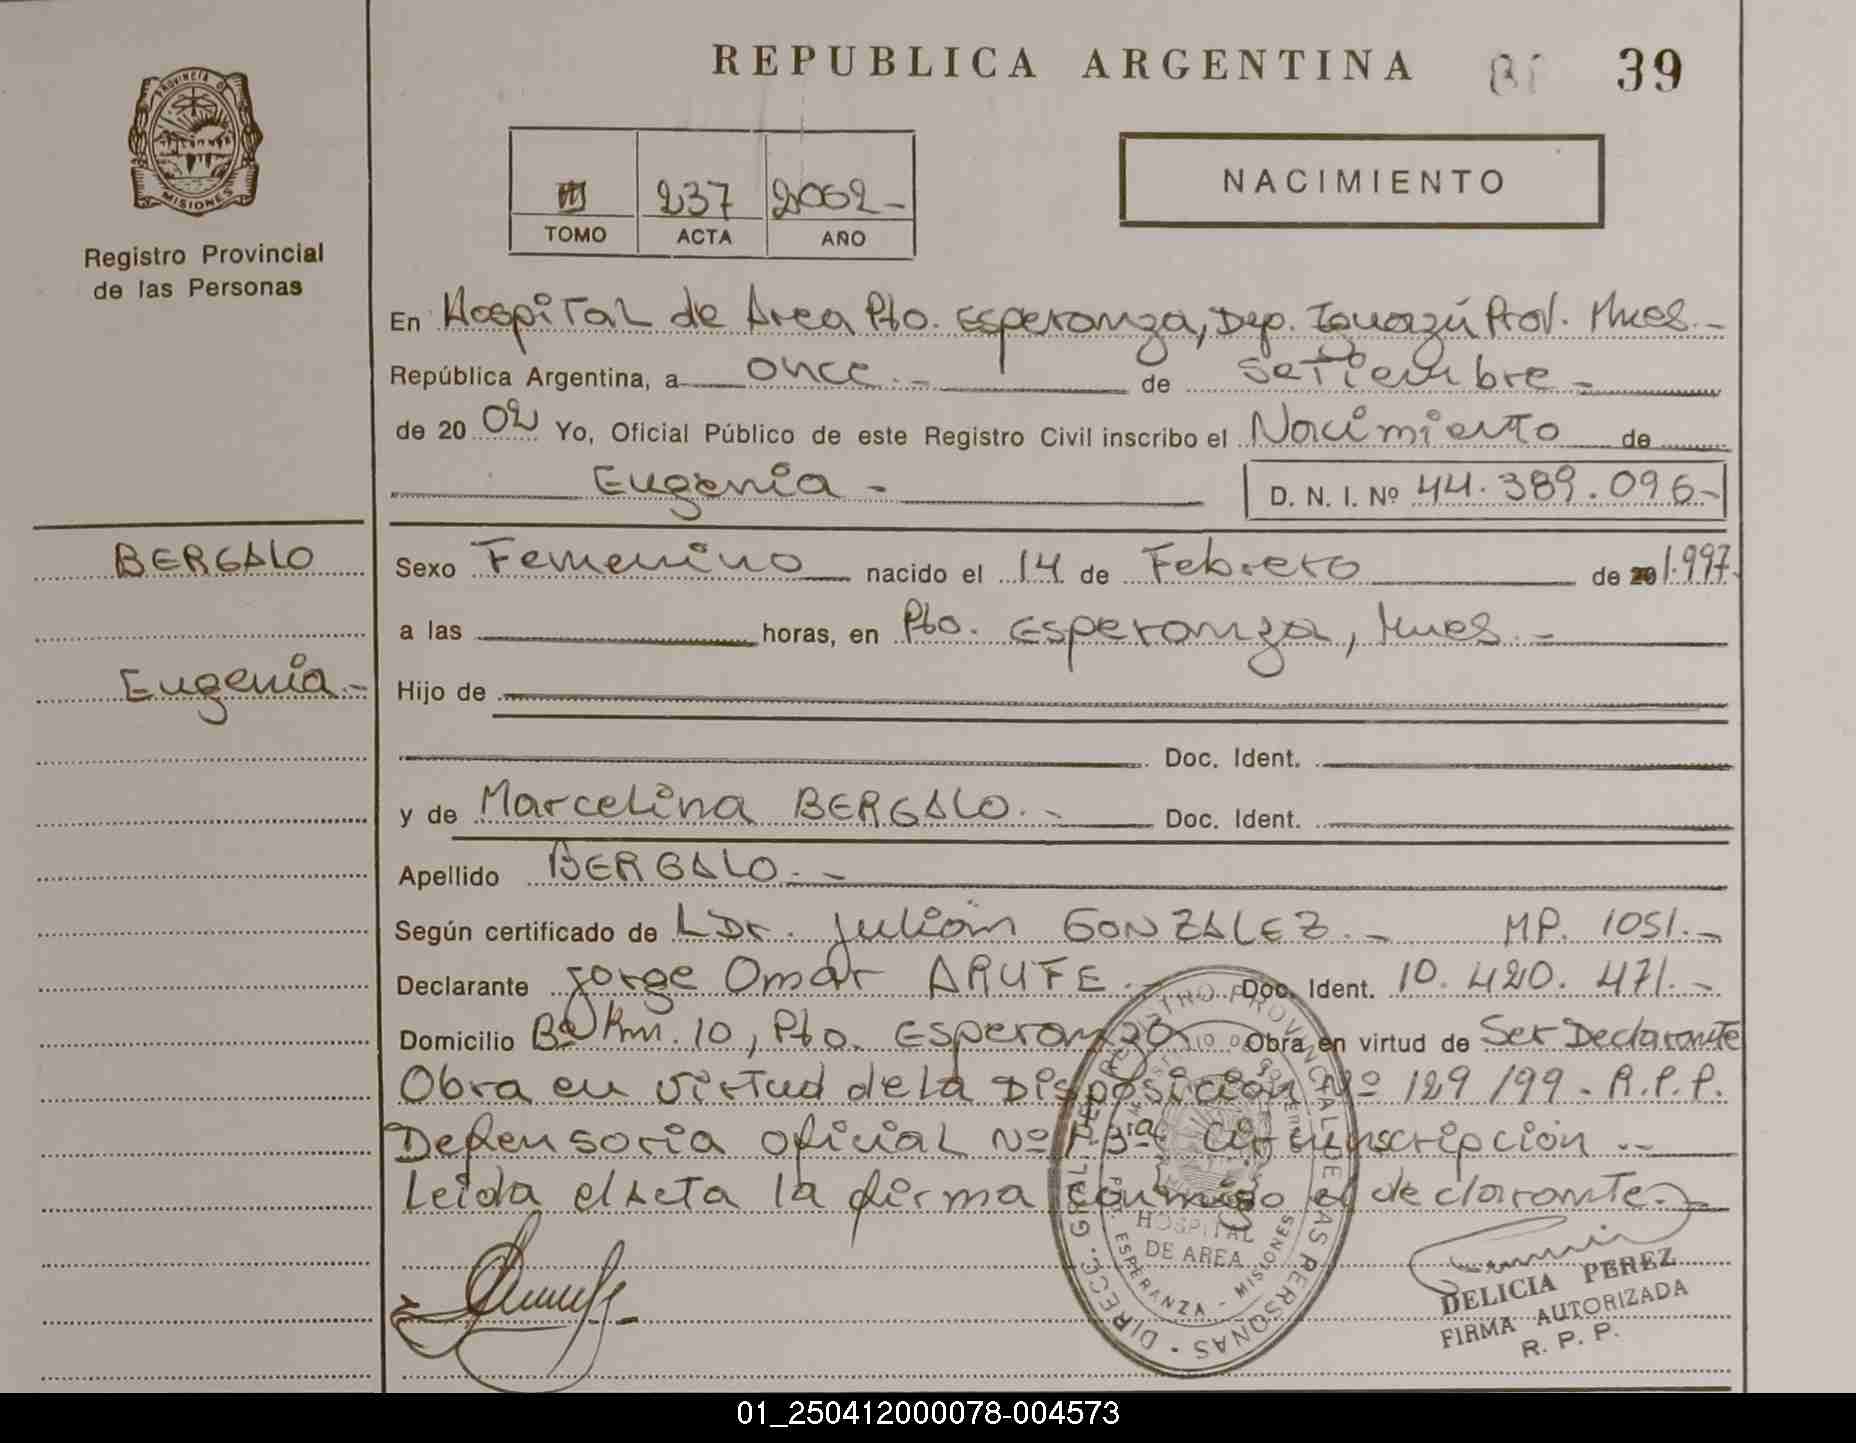 REPUBLICA ARGENTINA 39
PROVINCIA D MISIONES
Registro Provincial
de las Personas
237 2002-
TOMO ACTA AÑO
NACIMIENTO
En Hospital de Area Pto. Esperanza, Dep. Iguazú Prov. Mnes.-
República Argentina, a once.- de Setiembre-
de 20 02 Yo, Oficial Público de este Registro Civil inscribo el Nacimiento de
Eugenia- D. N. I. Nº 44.389.096-
BERGALO
Eugenia.-
Sexo Femenino nacido el 14 de Febrero de 20 1.997.
a las horas, en Pto. Esperanza, Mnes.-
Hijo de
Doc. Ident.
y de Marcelina BERGALO.- Doc. Ident.
Apellido BERGALO.-
Según certificado de LDr. Julián GONZALEZ.- MP. 1051.-
Declarante Jorge Omar ARUFE.- Doc. Ident. 10.420.471.-
Domicilio Bº Km. 10, Pto. Esperanza Obra en virtud de Ser Declarante
Obra en virtud de la Disposición Nº 129/99. R.P.P.
Defensoria oficial Nº 1 3ra Circunscripción.-
Leida el Acta la firma conmigo el declarante.-
DIRECC. GRAL. DEL REGISTRO PROVINCIAL DE LAS PERSONAS
MINISTERIO DE GOBIERNO
HOSPITAL
DE AREA
PTO. ESPERANZA - MISIONES
DELICIA PEREZ
FIRMA AUTORIZADA
R. P. P.
01_250412000078-004573